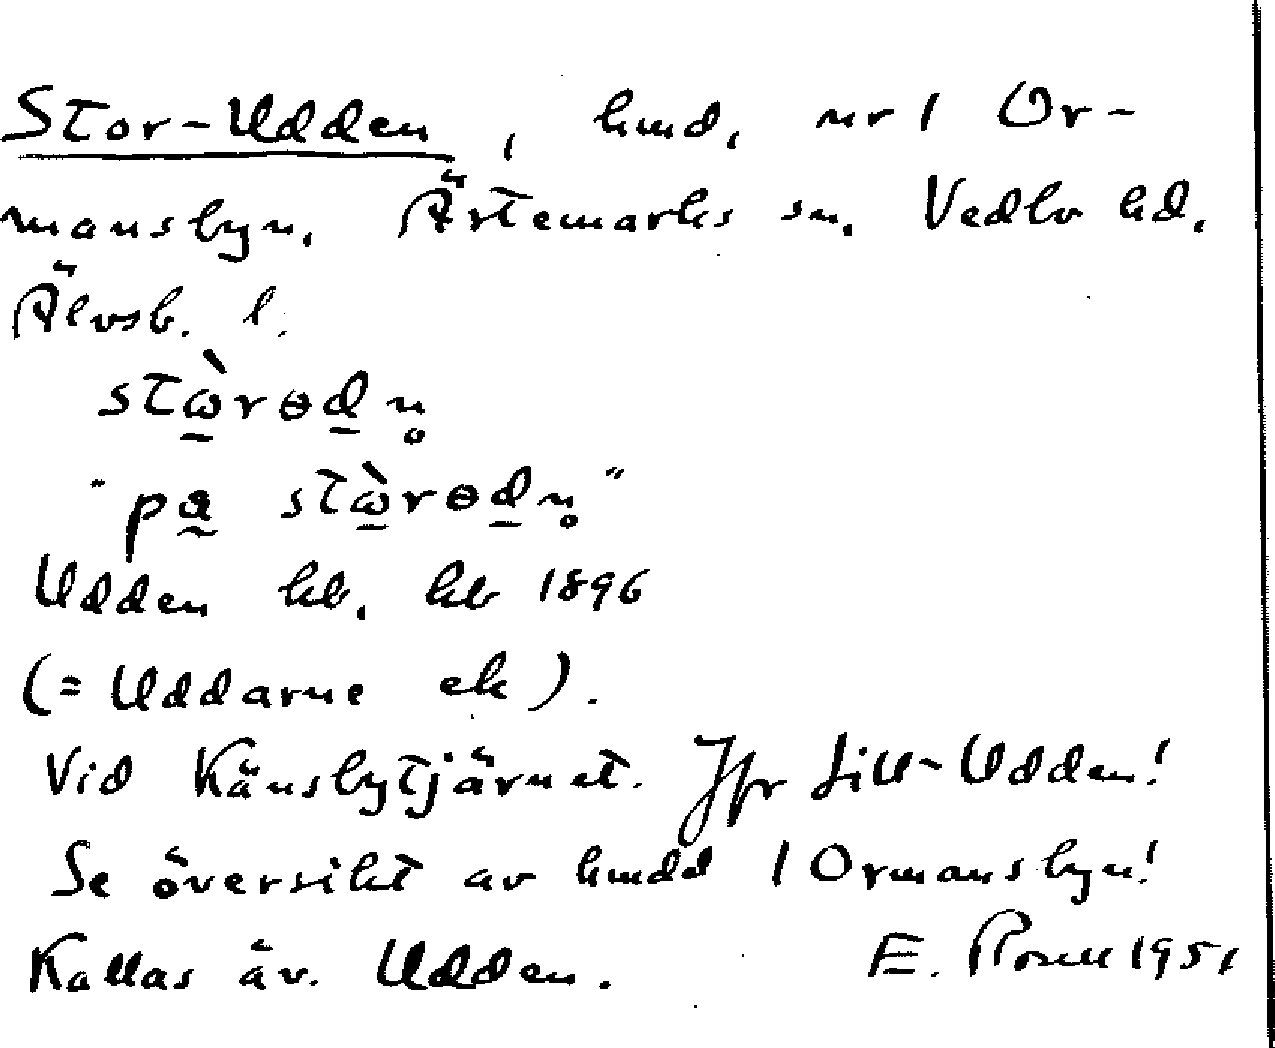 Stor-Udden, hmd, nr 1 Or-
mansbyn. Ärtemarks sn. Vedbo hd.
Älvsb. l.
stὼ̱rɵḏn̥
"pa̰ stὼ̱rɵḏn̥"
Udden kb. kb 1896
(= Uddarne ek).
Vid Känsbytjärnet. Jfr Lill-Udden!
Se översikt av hmdd 1 Ormansbyn!
Kallas äv. Udden.
E. Rosell 1951